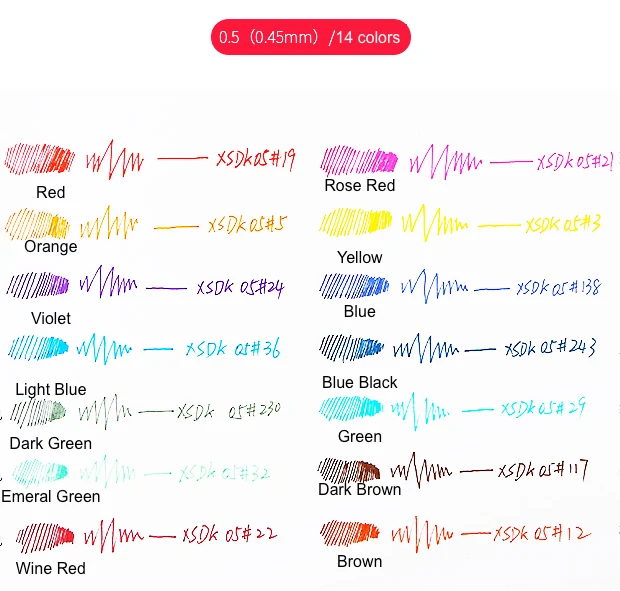 0.5（0.45mm）/14 colors
XSDK 05#19
Red
XSDK 05#21
Rose Red
XSDK 05#5
Orange
XSDK 05#3
Yellow
XSDK 05#24
Violet
XSDK 05#138
Blue
XSDK 05#36
Light Blue
XSDK 05#243
Blue Black
XSDK 05#230
Dark Green
XSDK 05#29
Green
XSDK 05#32
Emeral Green
XSDK 05#117
Dark Brown
XSDK 05#22
Wine Red
XSDK 05#12
Brown